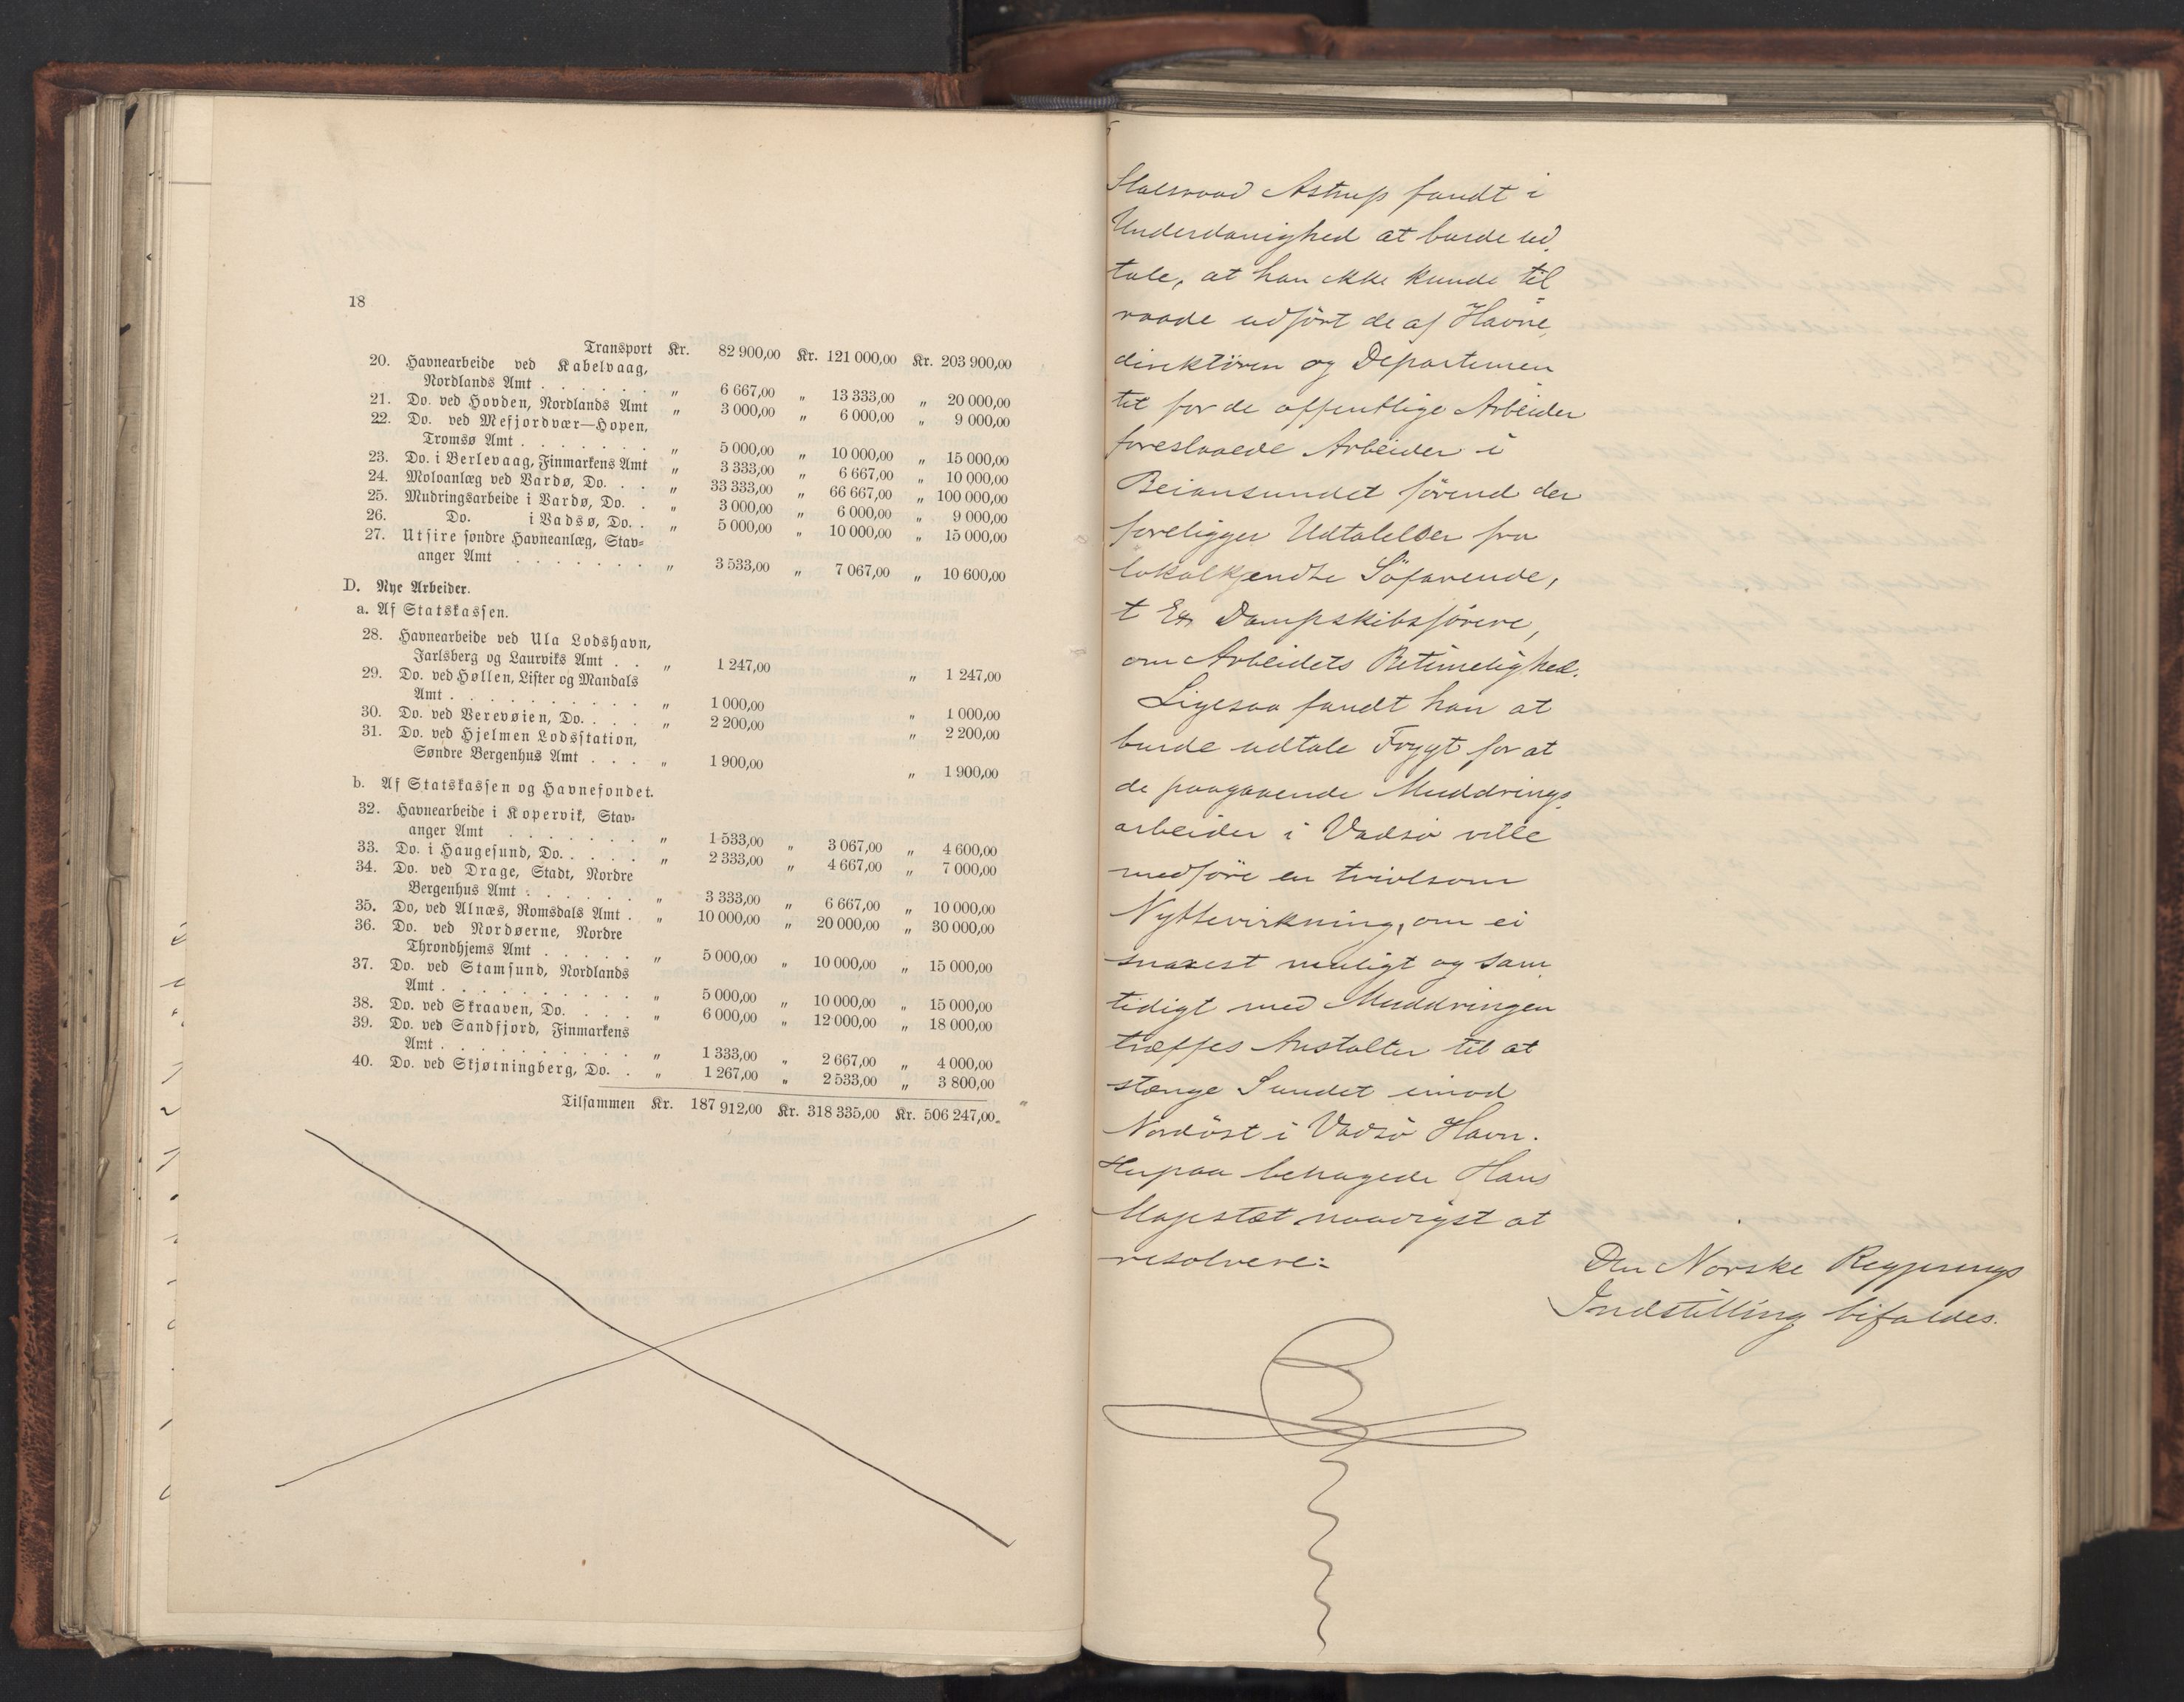 18
Transport Kr. 82 900,00 Kr. 121 000,00 Kr. 203 900,00
20. Havnearbeide ved Kabelvaag,
Nordlands Amt . . . . . . „ 6 667,00 „ 13 333,00 „ 20 000,00
21. Do. ved Hovden, Nordlands Amt „ 3 000,00 „ 6 000,00 „ 9 000,00
22. Do. ved Mefjordvær—Hopen,
Tromsø Amt . . . . . . . „ 5 000,00 „ 10 000,00 „ 15 000,00
23. Do. i Berlevaag, Finmarkens Amt „ 3 333,00 „ 6 667,00 „ 10 000,00
24. Moloanlæg ved Vardø, Do. . . „ 33 333,00 „ 66 667,00 „ 100 000,00
25. Mudringsarbeide i Vardø, Do. . „ 3 000,00 „ 6 000,00 „ 9 000,00
26. Do. i Vadsø, Do. . „ 5 000,00 „ 10 000,00 „ 15 000,00
27. Utsire søndre Havneanlæg, Stav-
anger Amt . . . . . . . „ 3 533,00 „ 7 067,00 „ 10 600,00
D. Nye Arbeider.
a. Af Statskassen.
28. Havnearbeide ved Ula Lodshavn,
Jarlsberg og Laurviks Amt . . „ 1 247,00 „ 1 247,00
29. Do. ved Høllen, Lister og Mandals
Amt . . . . . . . . . „ 1 000,00 „ 1 000,00
30. Do. ved Verevøien, Do. . . . „ 2 200,00 „ 2 200,00
31. Do. ved Hjelmen Lodsstation,
Søndre Bergenhus Amt . . . „ 1 900,00 „ 1 900,00
b. Af Statskassen og Havnefondet.
32. Havnearbeide i Kopervik, Stav-
anger Amt . . . . . . . „ 1 533,00 „ 3 067,00 „ 4 600,00
33. Do. i Haugesund, Do. . . . . „ 2 333,00 „ 4 667,00 „ 7 000,00
34. Do. ved Drage, Stadt, Nordre
Bergenhus Amt . . . . . . „ 3 333,00 „ 6 667,00 „ 10 000,00
35. Do, ved Alnæs, Romsdals Amt . „ 10 000,00 „ 20 000,00 „ 30 000,00
36. Do. ved Nordøerne, Nordre
Throndhjems Amt . . . . . „ 5 000,00 „ 10 000,00 „ 15 000,00
37. Do. ved Stamsund, Nordlands
Amt . . . . . . . . . „ 5 000,00 „ 10 000,00 „ 15 000,00
38. Do. ved Skraaven, Do. . . . „ 6 000,00 „ 12 000,00 „ 18 000,00
39. Do. ved Sandfjord, Finmarkens
Amt . . . . . . . . . „ 1 333,00 „ 2 667,00 „ 4 000,00
40. Do. ved Skjøtningberg, Do. . „ 1 267,00 „ 2 533,00 „ 3 800,00
Tilsammen Kr. 187 912,00 Kr. 318 335,00 Kr. 506 247,00.
Statsraad Astrup fandt i
Underdanighed at burde ud-
tale, at han ikke kunde til
raade udført de af Havne-
direktøren og Departemen
tet for de offentlige Arbeider
foreslaaede Arbeider i
Beiansundet førend der
foreligger Udtalelser fra
lokalkjendte Søfarende,
t Ex Dampskibsførere,
om Arbeidets Betimelighed.
Ligesaa fandt han at
burde udtale Frygt for at
de paagaaende Muddrings-
arbeider i Vadsø ville
medføre en tvivlsom
Nyttevirkning, om ei
snarest muligt og sam-
tidigt med Muddringen
træffes Anstalter til at
stænge Sundet imod
Nordøst i Vadsø Havn.
Herpaa behagede Hans
Majestæt naadigst at
resolvere:
Den Norske Regjerings
Indstilling bifaldes.